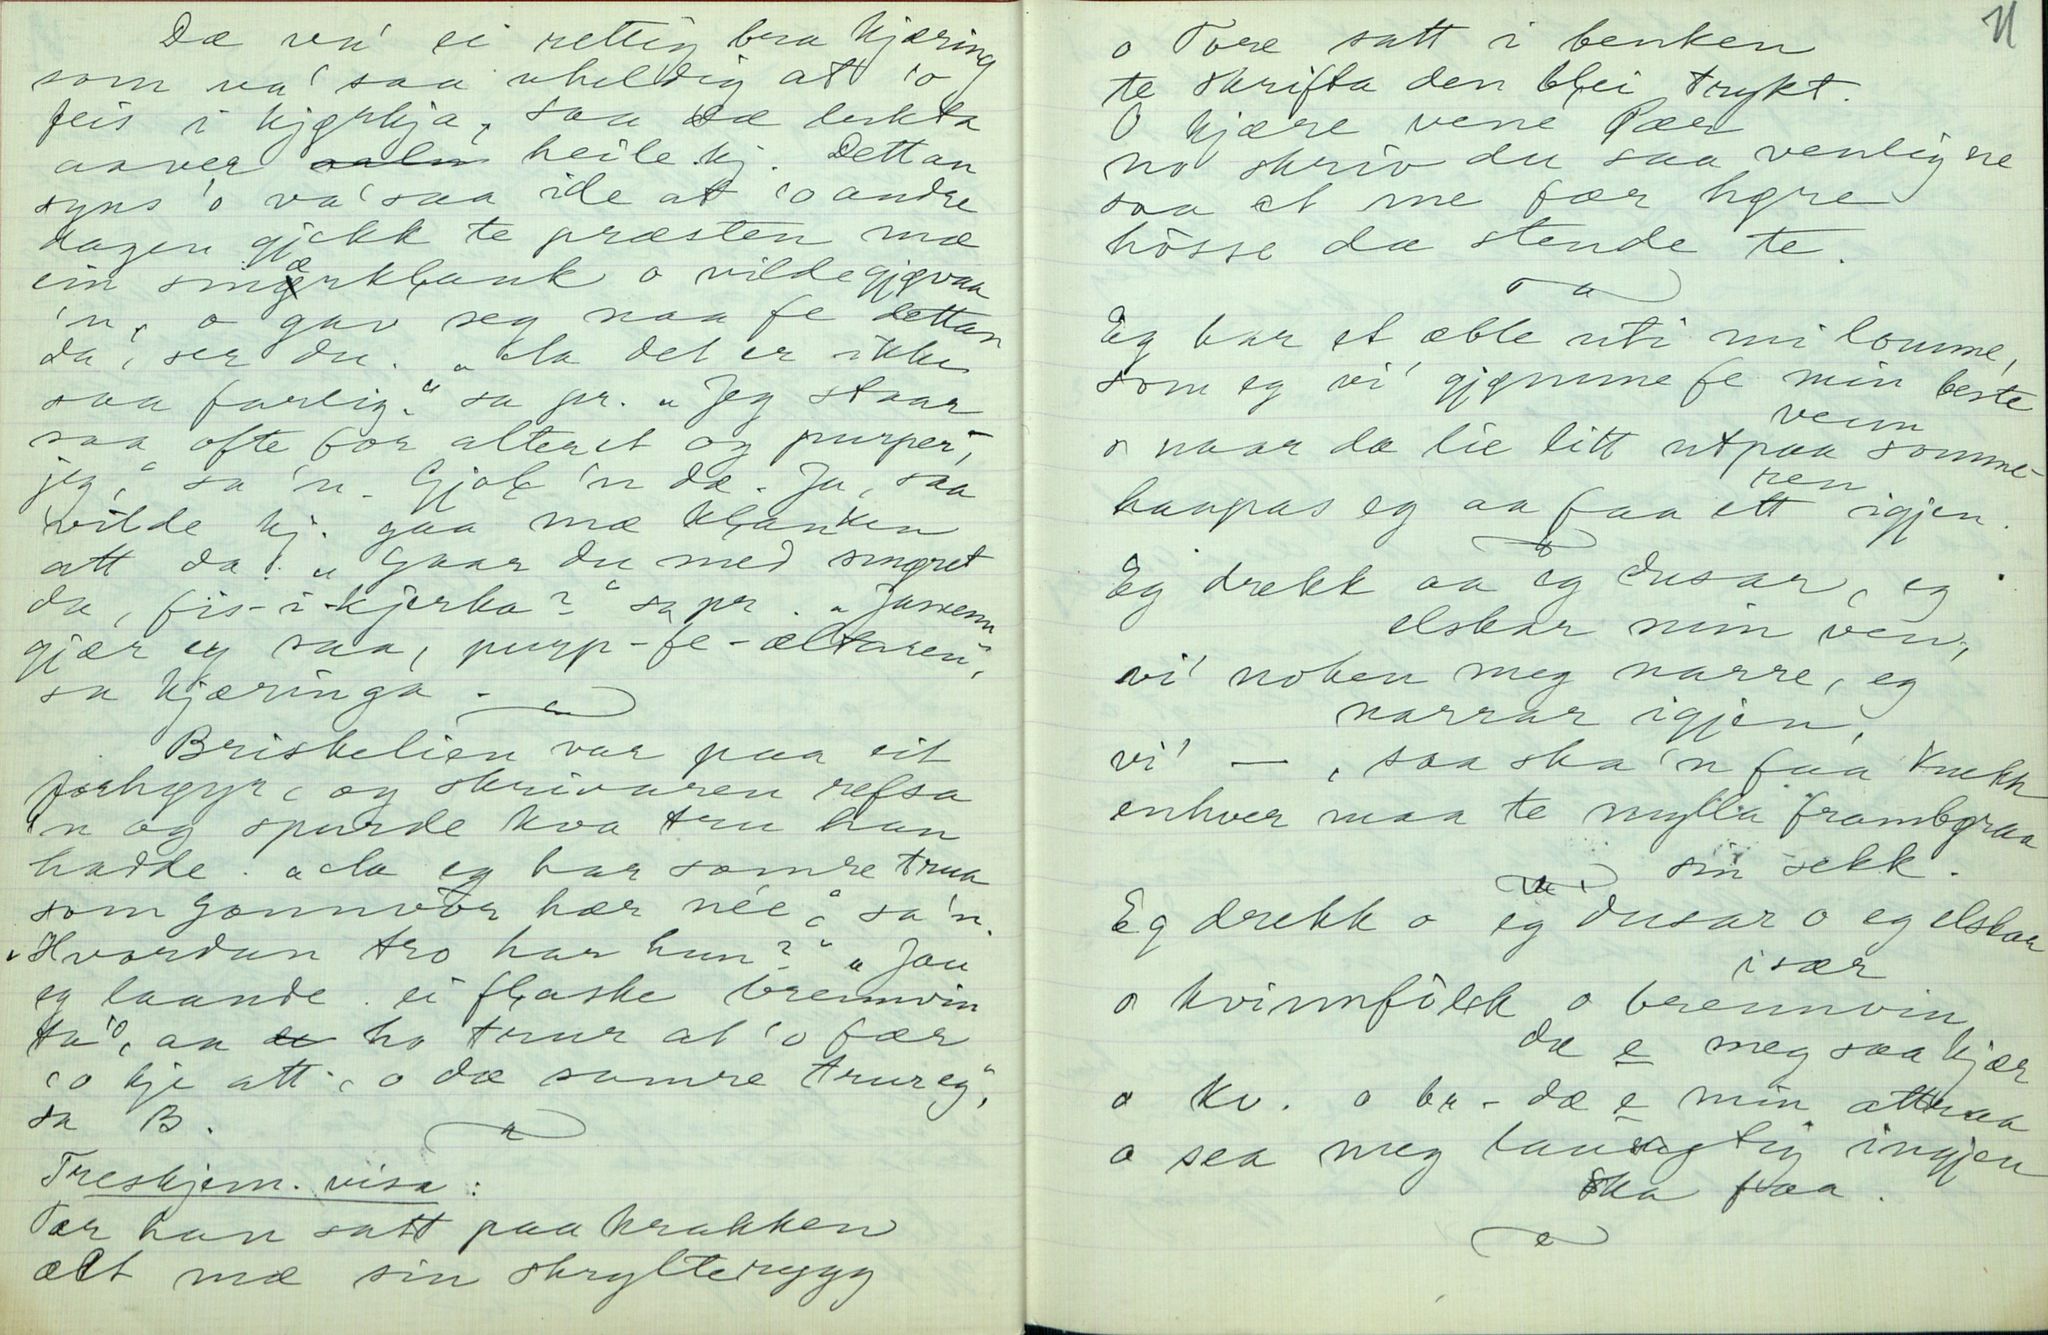 Dæ va' ei rettig bra kjæring
som va' saa uheldig at 'o
feis i kjørkja, saa dæ lukta
aaver heile kj. Dettan
syns 'o va' saa ille at 'o andre
dagen gjekk te præsten mæ
ein smærklank o vilde gjøvaa
'n, o gav seg naa fe dettan
da', ser du. „Aa det er ikke
saa farlig," sa pr. „Jeg staar
saa ofte for alteret og purper,
jeg," sa 'n. Gjole 'n dæ. Ja, saa
vilde kj. gaa mæ klanken
att da! „Gaar du med smøret
da, fis-i-kjerka?" sa pr. „Jamen
gjær eg saa, purp-fe-æltaren",
sa kjæringa.
Briskelien var paa eit
forhøyr, og skrivaren refsa
'n og spurde kva tru han
hadde. „Aa eg har somre trua
som Gonnvor hær née," sa 'n.
„Hvordan tro har hun?" „Jau
eg laande ei flaske brennvin
ta'o, aa ho trur at 'o fær
'o kje att, o dæ somre trur eg",
sa B.
Treskjem. visa:
Pær han satt paa krakken
ælt mæ sin skrylterygg
11
o Tore satt i benken
te skrifta den blei trykt.
O kjære vene Pær
no skriv du saa venlig ne
saa at me fær høre
hòsse da stende te.
Eg har et æble uti mi lomme,
som eg vi' gjømme fe min beste
venn
o naar da lie litt utpaa somme-
ren
haapas eg aa faa ett igjen.
Eg drekk aa eg dusar, eg
elskar min ven,
vi' noken meg narre, eg
narrar igjen,
vi' —, saa ska 'n faa knekk
enhver maa te mylla frambæraa
sin sekk.
Eg drekk o eg dusar o eg elskar
især
o kvinnfòlk o brennvin
da e meg saa kjær
o kv. o br- dæ e min attraa
o sea meg ingjen
ska faa.